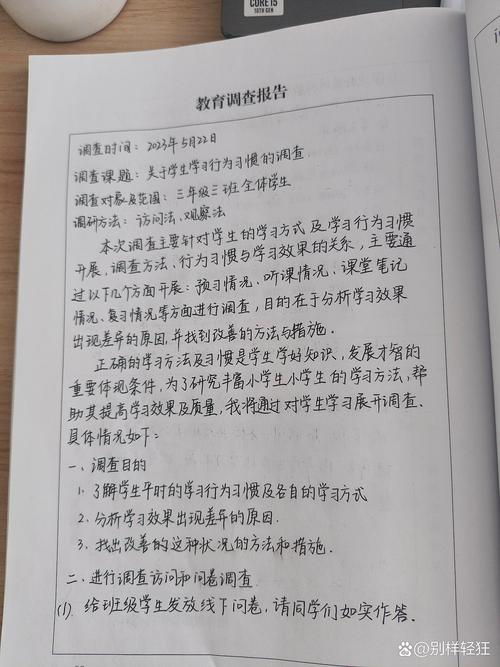 CORE i5
10TH GEN
教育调查报告
调查时间：2023年5月22日
调查课题：关于学生学习行为习惯的调查
调查对象及范围：三年级三班全体学生
调研方法：访问法、观察法
本次调查主要针对学生的学习方式及学习行为习惯
开展，调查方法、行为习惯与学习效果的关系，主要通
过以下几个方面开展：预习情况、听课情况、课堂笔记
情况、复习情况等方面进行调查，目的在于分析学习效果
出现差异的原因，并找到改善的方法与措施．
正确的学习方法及习惯是学生学好知识，发展才智的
重要体现条件，为了研究丰富小学生小学生的学习方法，帮
助其提高学习效果及质量，我将通过对学生学习展开调查．
具体情况如下：
一、调查目的
1. 了解学生平时的学习行为习惯及各自的学习方式
2. 分析学习效果出现差异的原因．
3. 找出改善的这种状况的方法和措施．
二、进行调查访问和问卷调查
(1). 给班级学生发放线下问卷，请同学们如实作答．
@别样轻狂